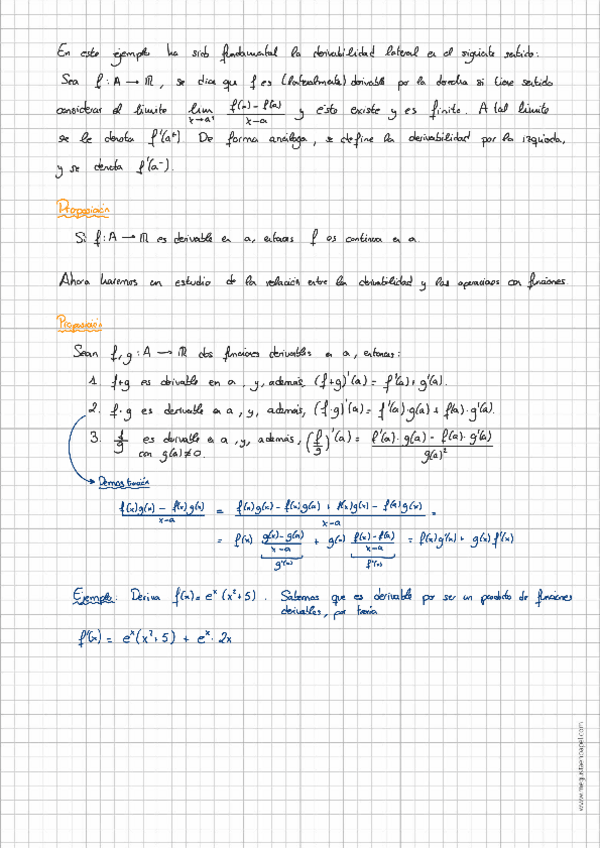 En este ejemplo ha sido fundamental la derivabilidad lateral en el siguiente sentido:
Sea f: A → ℝ, se dice que f es (lateralmente) derivable por la derecha si tiene sentido
considerar el límite lim x→a⁺ (f(x) - f(a))/(x-a) y este existe y es finito. A tal límite
se le denota f'(a⁺). De forma análoga, se define la derivabilidad por la izquierda,
y se denota f'(a⁻).
Proposición
Si f: A → ℝ es derivable en a, entonces f es continua en a.
Ahora haremos un estudio de la relación entre la derivabilidad y las operaciones con funciones.
Proposición
Sean f, g: A → ℝ dos funciones derivables en a, entonces:
1. f+g es derivable en a, y, además, (f+g)'(a) = f'(a) + g'(a).
2. f·g es derivable en a, y, además, (f·g)'(a) = f'(a)·g(a) + f(a)·g'(a).
3. f/g es derivable en a, y, además, (f/g)'(a) = (f'(a)·g(a) - f(a)·g'(a))/g(a)²
con g(a) ≠ 0.
Demostración
= =
= f(x) (g(x)-g(a))/(x-a) + g(x) (f(x)-f(a))/(x-a) =
Ejemplo: Deriva f(x) = eˣ(x²+5). Sabemos que es derivable por ser un producto de funciones
derivables, por teoría
f'(x) = eˣ(x²+5) + eˣ·2x
www.megustaenpapel.com